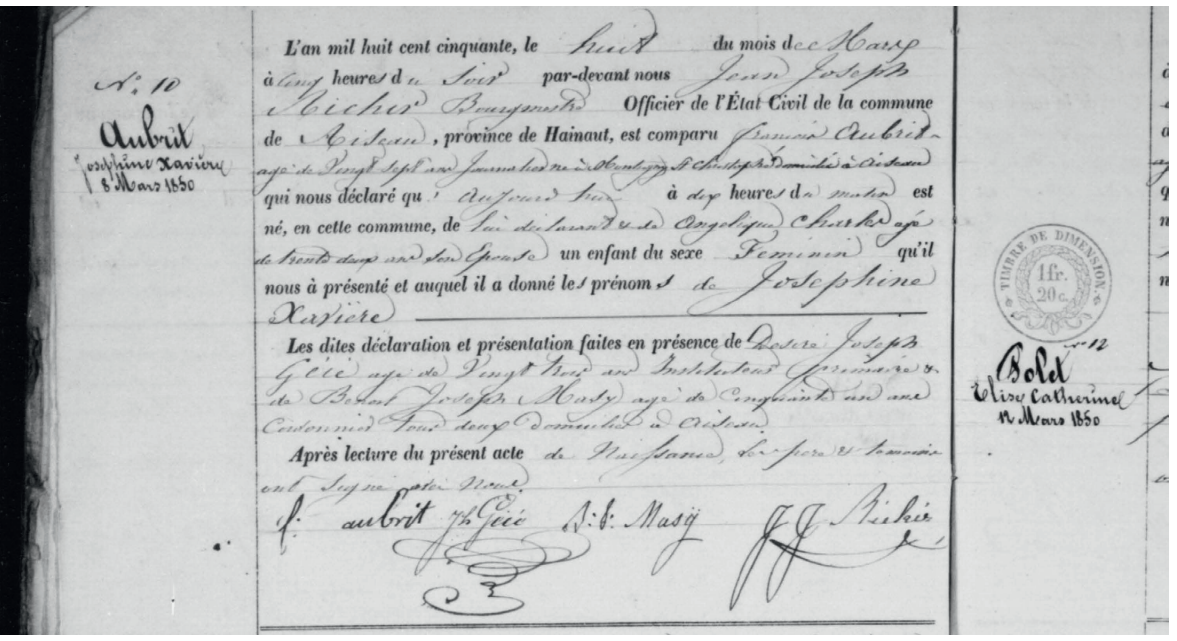 N° 10
Aubrit
Josephine Xavière
8 Mars 1850
L'an mil huit cent cinquante, le huit du mois de Mars
à cinq heures du Soir par-devant nous Jean Joseph
Richir Bourgmestre Officier de l'État Civil de la commune
de Aiseau, province de Hainaut, est comparu francois Aubrit
agé de Vingt Sept ans Journalier né à Montigny St Christophe Domicilié à Aiseau
qui nous déclaré qu' aujourd'hui à dix heures du matin est
né, en cette commune, de lui déclarant & de Angelique Charles agé
de trente deux ans son Epouse un enfant du sexe Feminin qu'il
nous à présenté et auquel il a donné les prénoms de Josephine
Xavière
Les dites déclaration et présentation faites en présence de Desiré Joseph
Géié agé de Vingt trois ans Instituteur primaire &
de Benoit Joseph Masy agé de Cinquante un ans
Cordonnier tous deux domicilié à Aiseau
Après lecture du présent acte de Naissance, les pere & temoins
ont signé avec Nous.
f. aubrit Jh Géié B. J. Masÿ JJ Richir
TIMBRE DE DIMENSION.
1fr.
20c.
n° 12
Bolet
Elise Catherine
12 Mars 1850